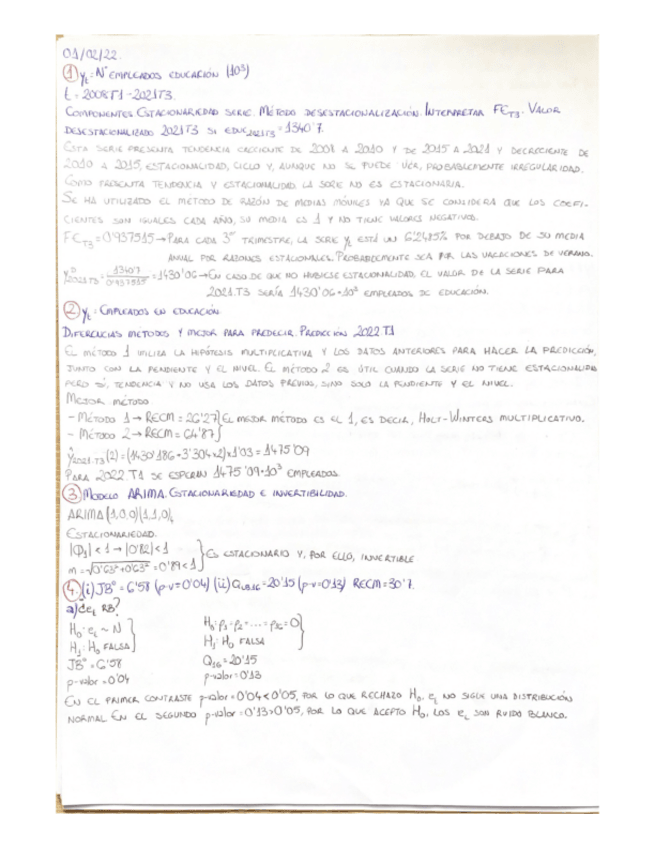 01/02/22.
1 yt = Nº EMPLEADOS EDUCACIÓN (10³)
t = 2008T1-2021T3.
COMPONENTES ESTACIONARIEDAD SERIE. MÉTODO DESESTACIONALIZACIÓN. INTERPRETAR FCT3. VALOR
DESESTACIONALIZADO 2021T3 SI EDUC2021T3 = 1340'7.
ESTA SERIE PRESENTA TENDENCIA CRECIENTE DE 2008 A 2010 Y DE 2015 A 2021 Y DECRECIENTE DE
2010 A 2015, ESTACIONALIDAD, CICLO Y, AUNQUE NO SE PUEDE VER, PROBABLEMENTE IRREGULARIDAD.
COMO PRESENTA TENDENCIA Y ESTACIONALIDAD LA SERIE NO ES ESTACIONARIA.
SE HA UTILIZADO EL MÉTODO DE RAZÓN DE MEDIAS MÓVILES YA QUE SE CONSIDERA QUE LOS COEFI-
CIENTES SON IGUALES CADA AÑO, SU MEDIA ES 1 Y NO TIENE VALORES NEGATIVOS.
FCT3 = 0'937515 → PARA CADA 3er TRIMESTRE, LA SERIE yt ESTÁ UN 6'2485% POR DEBAJO DE SU MEDIA
ANUAL POR RAZONES ESTACIONALES. PROBABLEMENTE SEA POR LAS VACACIONES DE VERANO.
yD2021T3 = 1340'7 / 0'937515 = 1430'06 → EN CASO DE QUE NO HUBIESE ESTACIONALIDAD, EL VALOR DE LA SERIE PARA
2021.T3 SERÍA 1430'06·10³ EMPLEADOS DE EDUCACIÓN.
2 yt = EMPLEADOS EN EDUCACIÓN.
DIFERENCIAS MÉTODOS Y MEJOR PARA PREDECIR. PREDICCIÓN 2022T1
EL MÉTODO 1 UTILIZA LA HIPÓTESIS MULTIPLICATIVA Y LOS DATOS ANTERIORES PARA HACER LA PREDICCIÓN,
JUNTO CON LA PENDIENTE Y EL NIVEL. EL MÉTODO 2 ES ÚTIL CUANDO LA SERIE NO TIENE ESTACIONALIDAD
PERO SÍ, TENDENCIA Y NO USA LOS DATOS PREVIOS, SINO SOLO LA PENDIENTE Y EL NIVEL.
MEJOR MÉTODO
- MÉTODO 1 → RECM = 26'27 } EL MEJOR MÉTODO ES EL 1, ES DECIR, HOLT-WINTERS MULTIPLICATIVO.
- MÉTODO 2 → RECM = 64'87 }
ŷ2021.T3(2) = (1430'186 + 3'304×2)×1'03 = 1475'09
PARA 2022.T1 SE ESPERAN 1475'09·10³ EMPLEADOS.
3 MODELO ARIMA. ESTACIONARIEDAD E INVERTIBILIDAD.
ARIMA(1,0,0)(1,1,0)4
ESTACIONARIEDAD.
|Φ1| < 1 → |0'82| < 1 } ES ESTACIONARIO Y, POR ELLO, INVERTIBLE
m = √0'63²+0'63² = 0'89 < 1 }
4. (i) JB = 6'58 (p-v=0'04) (ii) QLB16 = 20'15 (p-v=0'13) RECM = 30'7.
a) ¿et RB?
H0: et ~ N H0: ρ1 = ρ2 = .... = ρ16 = 0
H1: H0 FALSA H1: H0 FALSA
JB = 6'58 Q16 = 20'15
p-valor = 0'04 p-valor = 0'13
EN EL PRIMER CONTRASTE p-valor = 0'04 < 0'05, POR LO QUE RECHAZO H0. et NO SIGUE UNA DISTRIBUCIÓN
NORMAL. EN EL SEGUNDO p-valor = 0'13 > 0'05, POR LO QUE ACEPTO H0, LOS et SON RUIDO BLANCO.